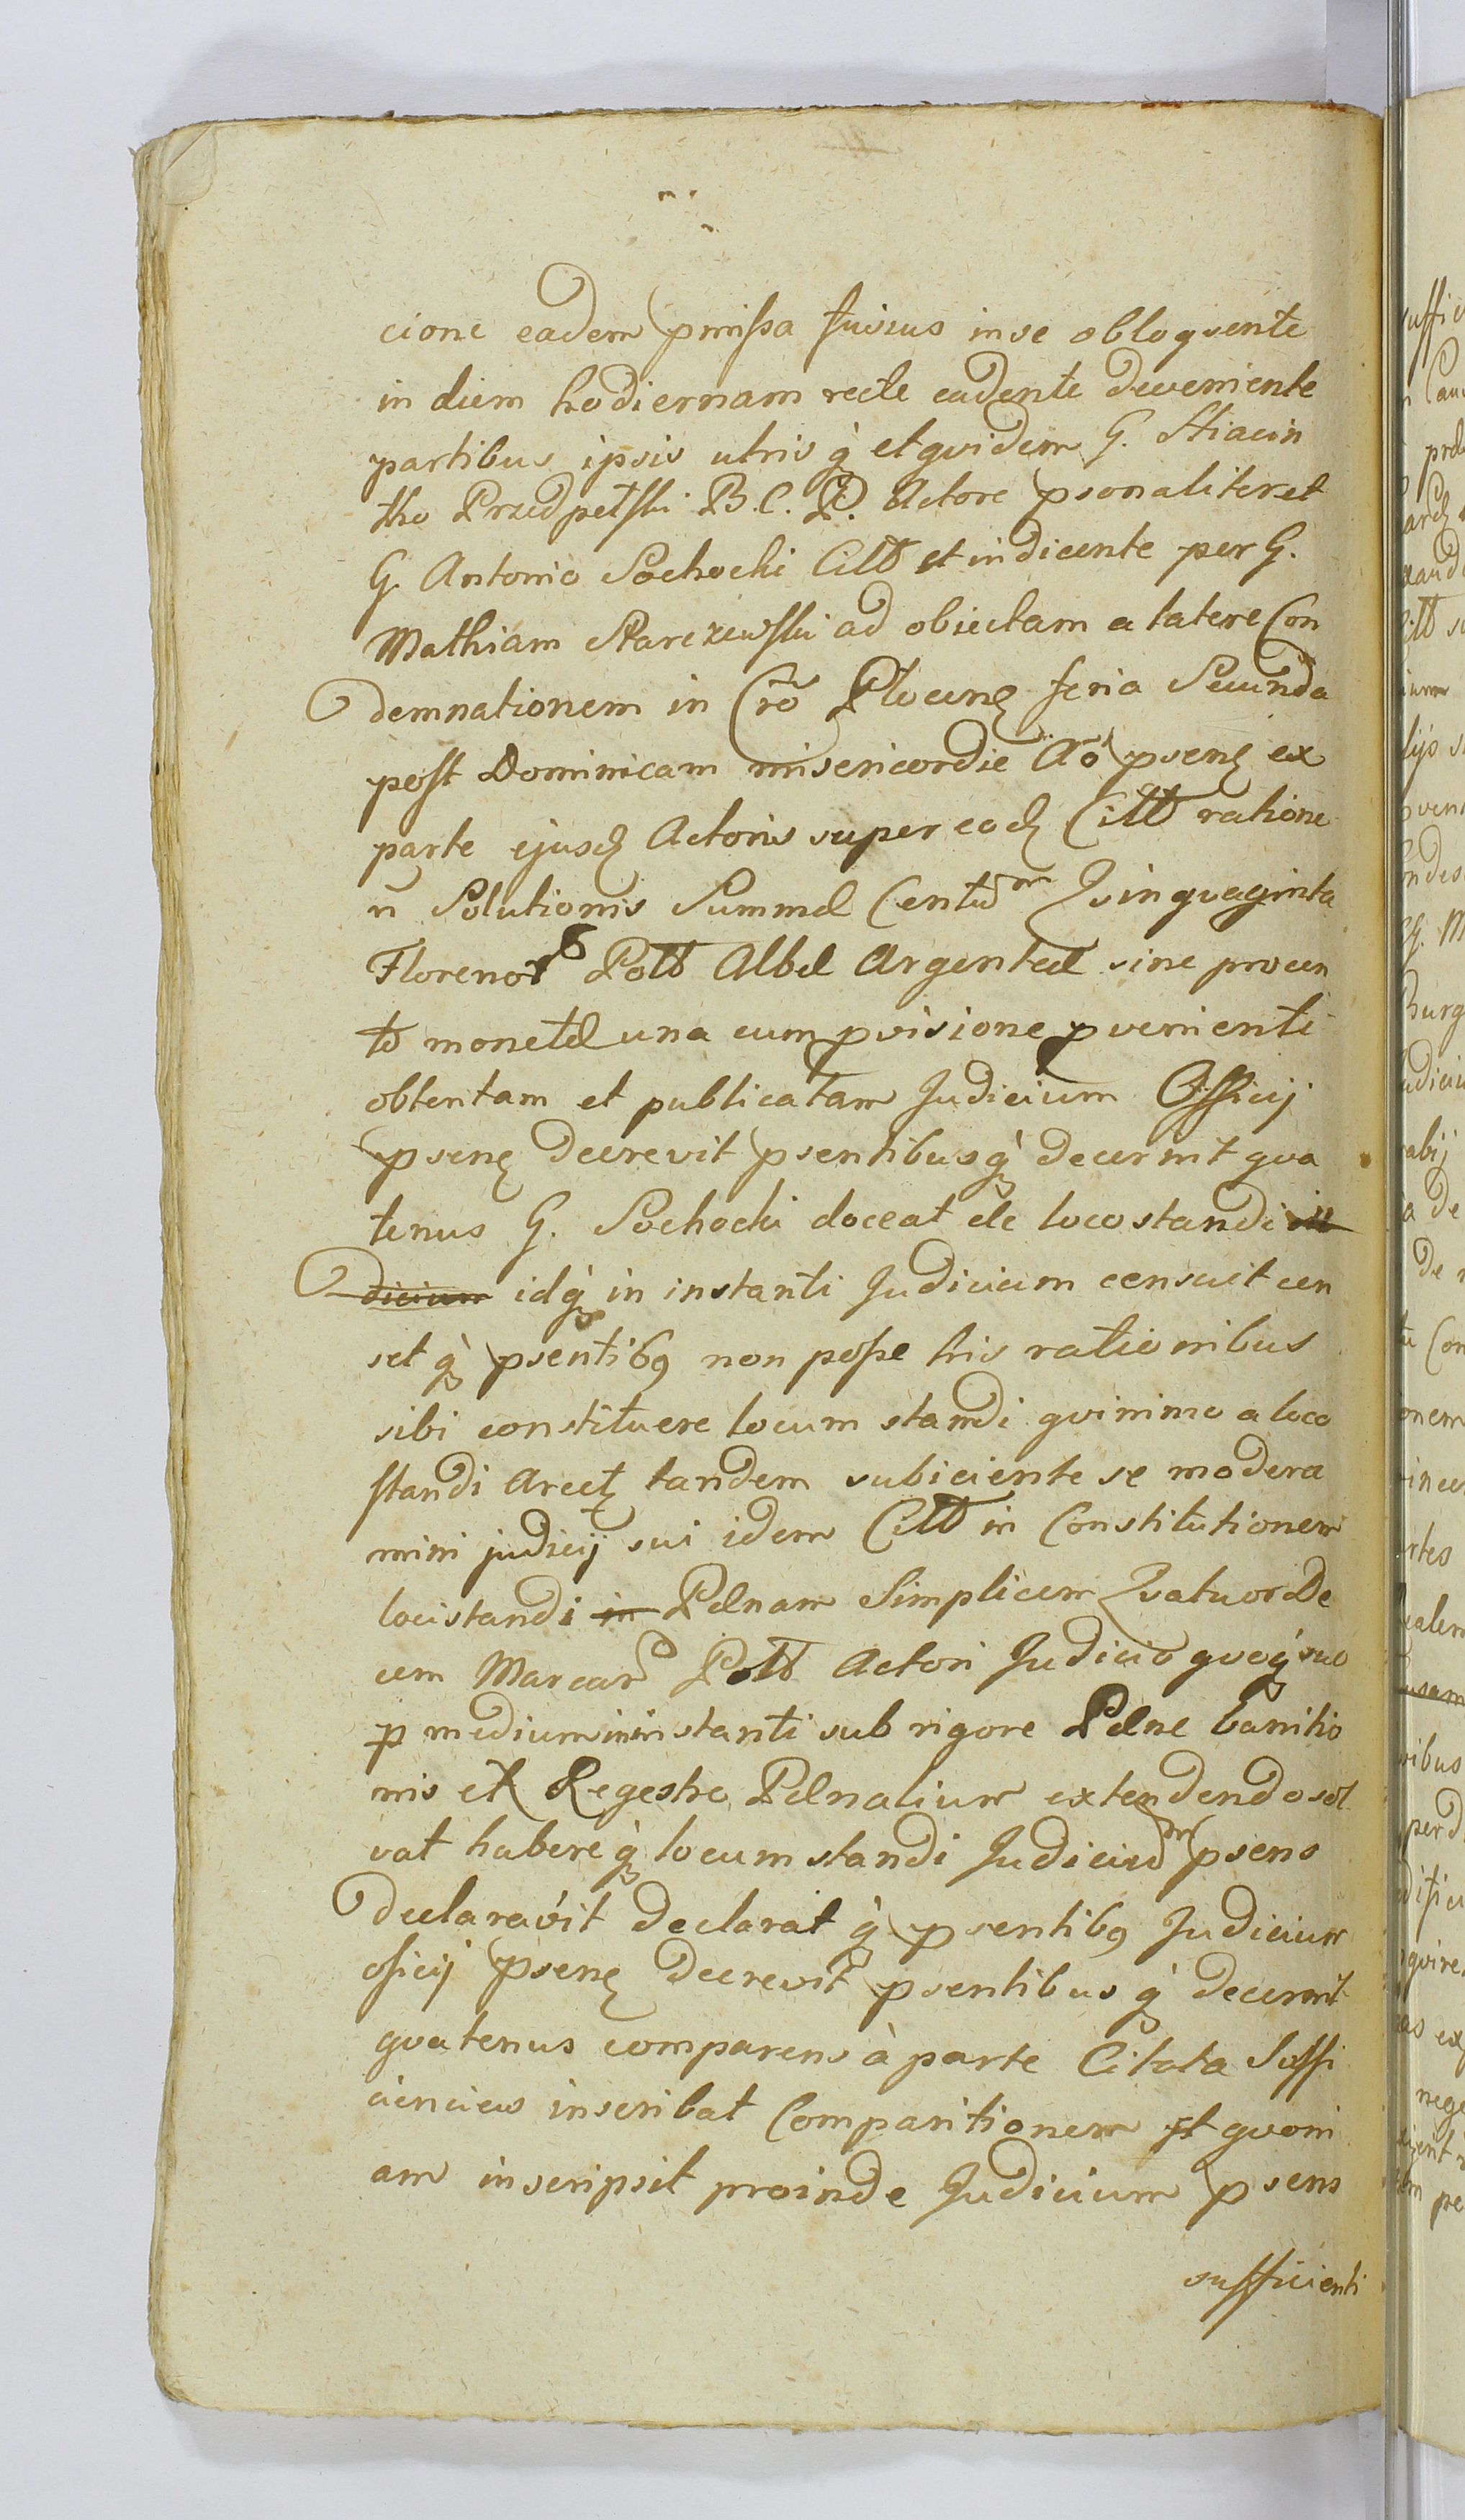 cione eadem pmissa fusius in se obloqvente
in diem hodiernam recte cadente deveniente
partibus ipsis utrisq̀ et qvidem G. Hiacin
tho Przedpełski B. C. P. Actore psonaliter et
G. Antonio Sochocki Citto et indicente per G.
Mathiam Starczewski ad obiectam a latere Con
demnationem in Cro Plocens feria Secunda
post Dominicam misericordie Ao psenς ex
parte ejusd Actoris super eod Citto ratione
n Solutionis Summæ Centum Qvinqvaginta
Florenor Poll Albæ Argenteæ sine procen
to monetæ una cum pvisione pvenienti
obtentam et publicatam Judicium Officij
psenς decrevit psentibusq̀ decernit qva
tenus G. Sochocki doceat de loco standi iu
dicium idq̀ in instanti Judicium censuit cen
setq̀ psentib9 non posse his rationibus
sibi constituere locum standi qvinimo a loco
standi Arcet tandem subiciente se modera
mini judicij sui idem Citto in Constitutionem
loci standi in Pænam Simplicem Qvatuor De
cem Marcar Poll Actori Judicio qvoq̀ suo
p medium in instanti sub rigore Pæne banitio
nis ex Regestro Pænalium extendendo sol
vat habereq̀ locum standi Judicium psens
declaravit declaratq̀ psentib9 Judicium
oficij psenς decrevit psentibusq̀ decernit
qvatenus comparens à parte Citata Suffi
ciencius inscribat Comparitionem et qvoni
am inscripsit proinde Judicium psens
sufficienti